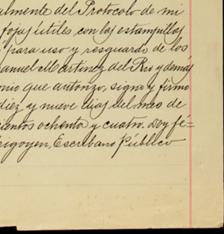 almente del Protocolo de mi
fojas útiles con las estampillas
para uso y resguardo de los
anuel Martinez del Rio y demas
nio que autorizo, signo y firmo
diez y nueve dias del mes de
cientos ochenta y cuatro. Doy fé-
rigoyen, Escribano Público